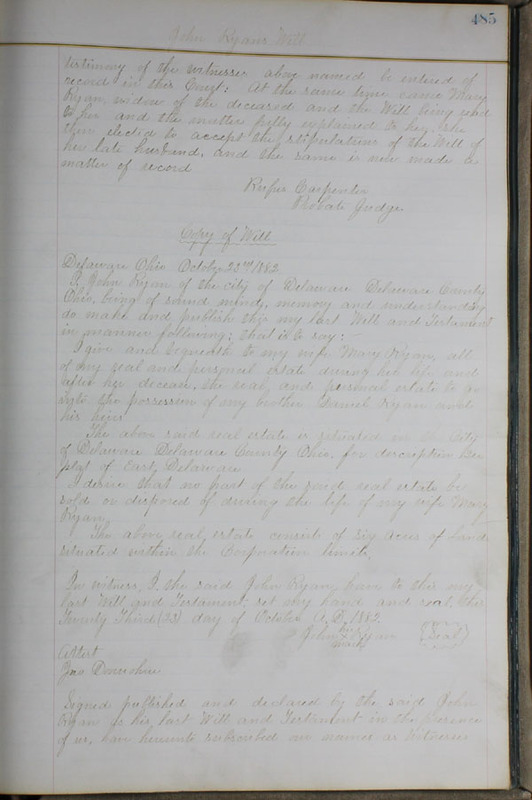 485
John Ryan's Will
testimony of the witnesses above named be entered of
record in this Court: At the same time came Mary
Ryan widow of the deceased and the Will being read
to her and the matter fully explained to her, she
then elected to accept the stipulations of the Will of
her late husband, and the same is now made a
matter of record
Rufus Carpenter
Probate Judge
Copy of Will
Delaware Ohio October 23rd 1882
I John Ryan of the city of Delaware Delaware County
Ohio, being of sound mind, memory and understanding
do make and publish this my last Will and Testament
in manner following; that is to say:
I give and bequeath to my wife Mary Ryan, all
of my real and personal estate during her life and
after her decease, the real and personal estate to go
into the possession of my brother Daniel Ryan and
his heirs
The above said real estate is situated in the City
of Delaware Delaware County Ohio, for description See
plat of East Delaware
I desire that no part of the said real estate be
sold or disposed of during the life of my wife Mary
Ryan
The above real estate consists of Six Acres of land
situated within the Corporation limits.
In witness, I the said John Ryan, have to this my
last Will and Testament, set my hand and seal, this
Twenty Third (23) day of October A.D. 1882
his
John X Ryan (Seal)
mark
Attest
Signed published and declared by the said John
Ryan as his last Will and Testament in the presence
of us, have hereunto subscribed our names as Witnesses